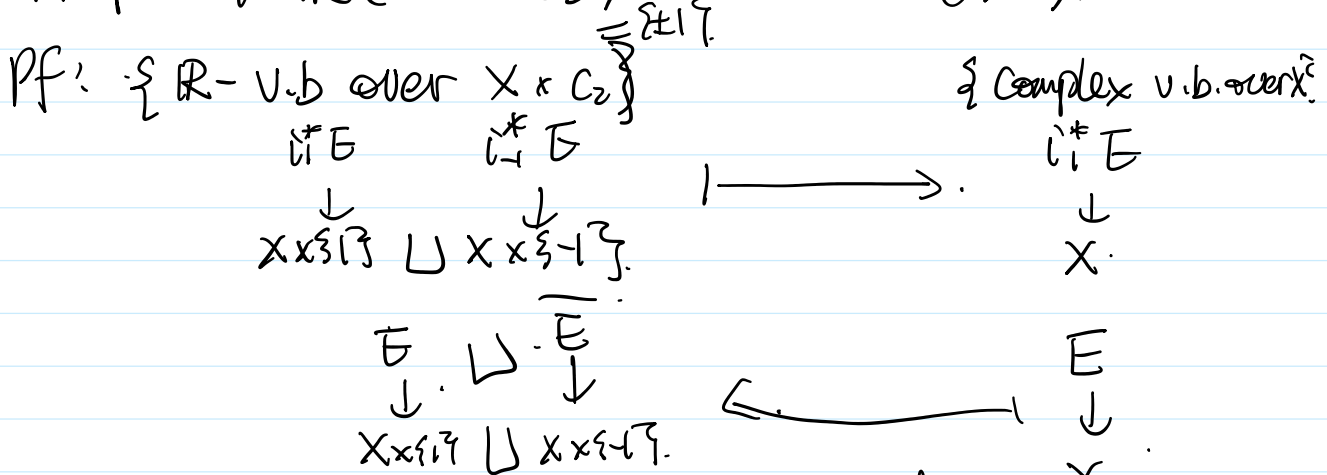 = {±1}.
Pf: {R- v.b over X × C₂} {Complex v.b. over X}
i₁*E i₋₁*E ↦ i₁*E
↓ ↓ ↓
X×{1} ⊔ X×{-1}. X.
E ⊔ E̅ E
↓ ↓ ↓
X×{1} ⊔ X×{-1}.